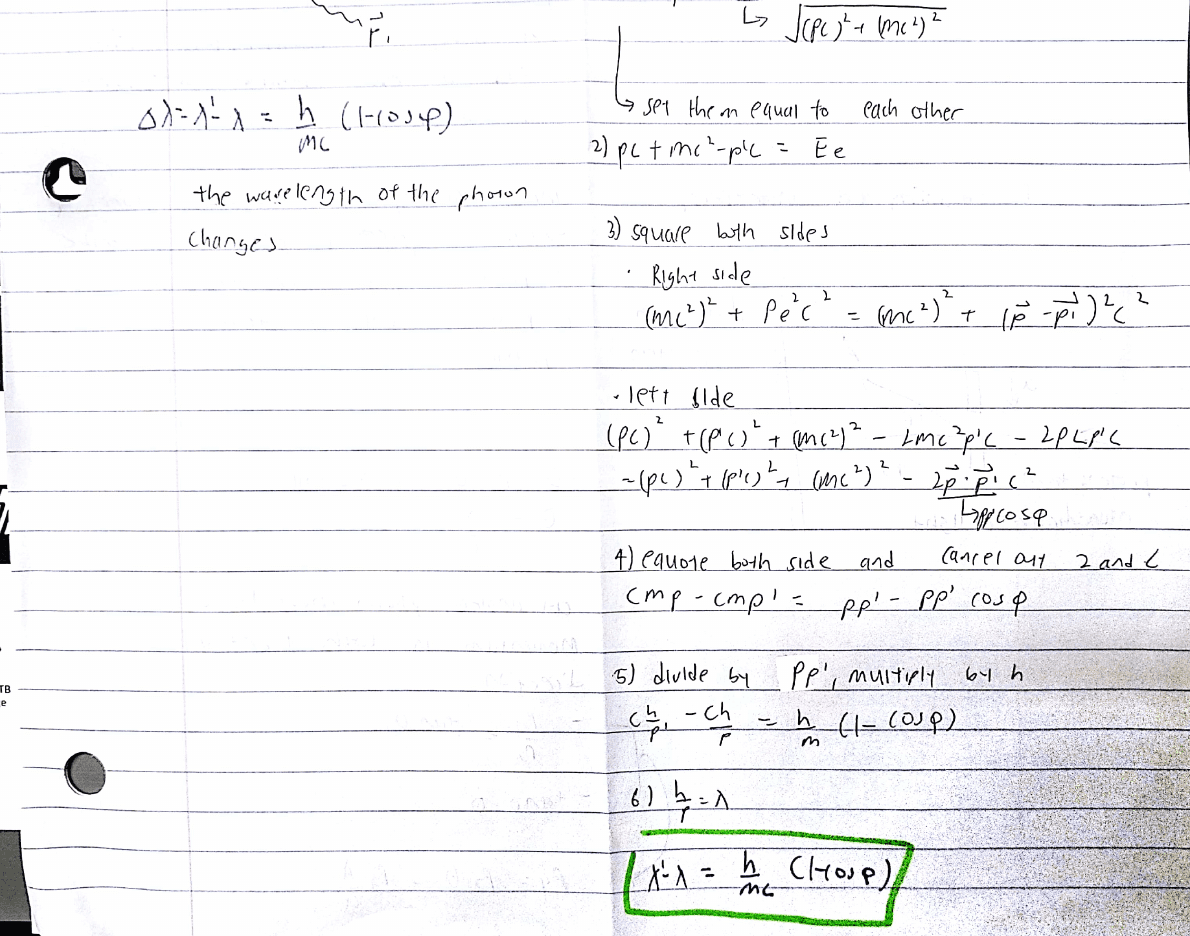 r₁
Δλ = λ' - λ = h/mc (1-cosφ)
the wavelength of the photon
changes
↳ √((pc)² + (mc²)²)
↳ set them equal to each other
2) pc + mc² - p'c = Ee
3) square both sides
· Right side
(mc²)² + Pe²c² = (mc²)² + (p⃗ - p⃗')²c²
· left side
(pc)² + (p'c)² + (mc²)² - 2mc²p'c - 2pcp'c
~(pc)² + (p'c)² + (mc²)² - 2p⃗·p⃗' c²
↳ pp'cosφ
4) equate both side and cancel out 2 and c
cmp - cmp' = pp' - pp' cosφ
5) divide by pp', multiply by h
c h/p' - ch/p = h/m (1 - cosφ)
6) h/p = λ
λ' - λ = h/mc (1-cosφ)
TB
e